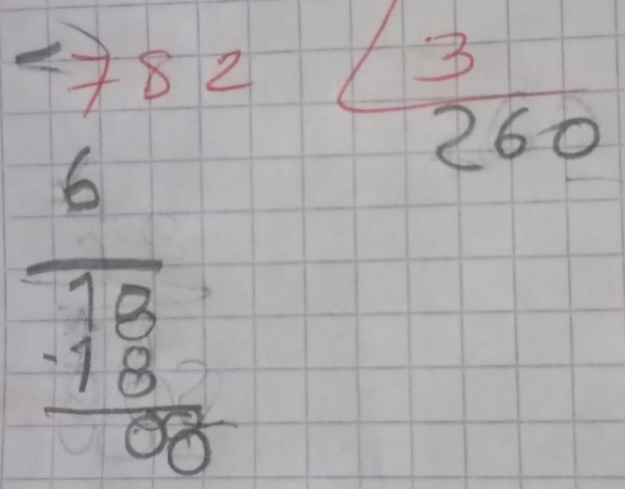 -782 3
260
6
18
-18
00